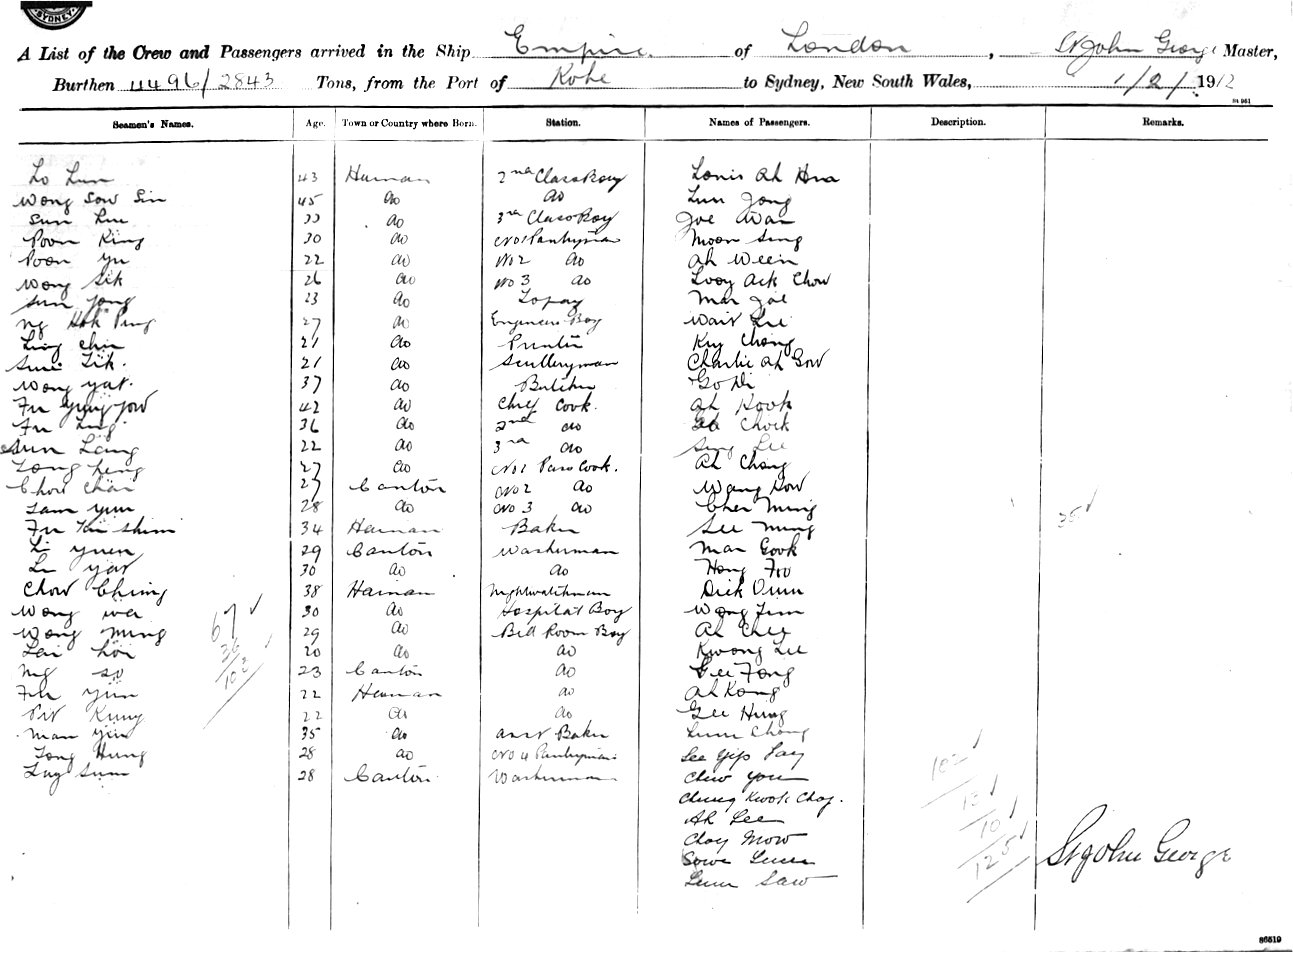 SYDNEY
A List of the Crew and Passengers arrived in the Ship Empire of London, St John George Master,
Burthen 4496/2843 Tons, from the Port of Kobe to Sydney, New South Wales, 1/2/1912
84 961
Seamen's Names. Age. Town or Country where Born. Station. Names of Passengers. Description. Remarks.
Lo Lum 43 Hainan 2nd Class Boy Louis Ah Hoa
Wong Sow Sin 45 do do Lum Jong
Sun Lui do 3rd Class Boy Joe Wan
Poon King 30 do No 1 Pantryman Moon Sing
Poon Yu 22 do No 2 do Ah Ween
Wong Sik 26 do No 3 do Looy Ack Chow
Sun Jong 23 do Topay Mar Joe
Ng Hok Ping 27 do Engineers Boy Wait Lee
Ling Chu 21 do Printer Kry Chong
Sun Tik. 21 do Sculleryman Charlie Ah Gow
Wong Yat. 37 do Butcher Go Di
Fu Yung Yow 42 do Chief Cook. Ah Hook
Fu Ling 36 do 2nd do Ah Chock
Sun Lang 22 do 3rd do Sing Lee
Tong Heng 27 do No 1 Pass Cook. Ah Chong
Chow Chai 27 Canton No 2 do Wang How
Lam Yun 28 do No 3 do Cher Ming
Fu Kui Shim 34 Hainan Baker See Ming 35
Li Yuen 29 Canton Washerman Mar Gook
Li Yat 30 do do Hong Foo
Chow Ching 38 Hainan Nightwatchman Dick Ounn
Wong Wa 30 do Hospital Boy Wong Jim
67
Wong Ming 29 do Bed Room Boy Ah Chey
36
Lai Hoi 20 do do Kwong Lee
103
Ng So 23 Canton do Gee Fong
Fu Yun 22 Hainan do Ah Kong
Pit Kung 22 do do Gee Hung
Man Yin 35 do Asst Baker Lum Chong
Tong Hung 28 do No 4 Pantryman See Yip Fay
102
Luy Sum 28 Canton Washerman Chew You
13
Chung Kwok Choy.
10
Ah Lee
Choy Mow
125
Sowe Luen
St John George
Lum Saw
86519